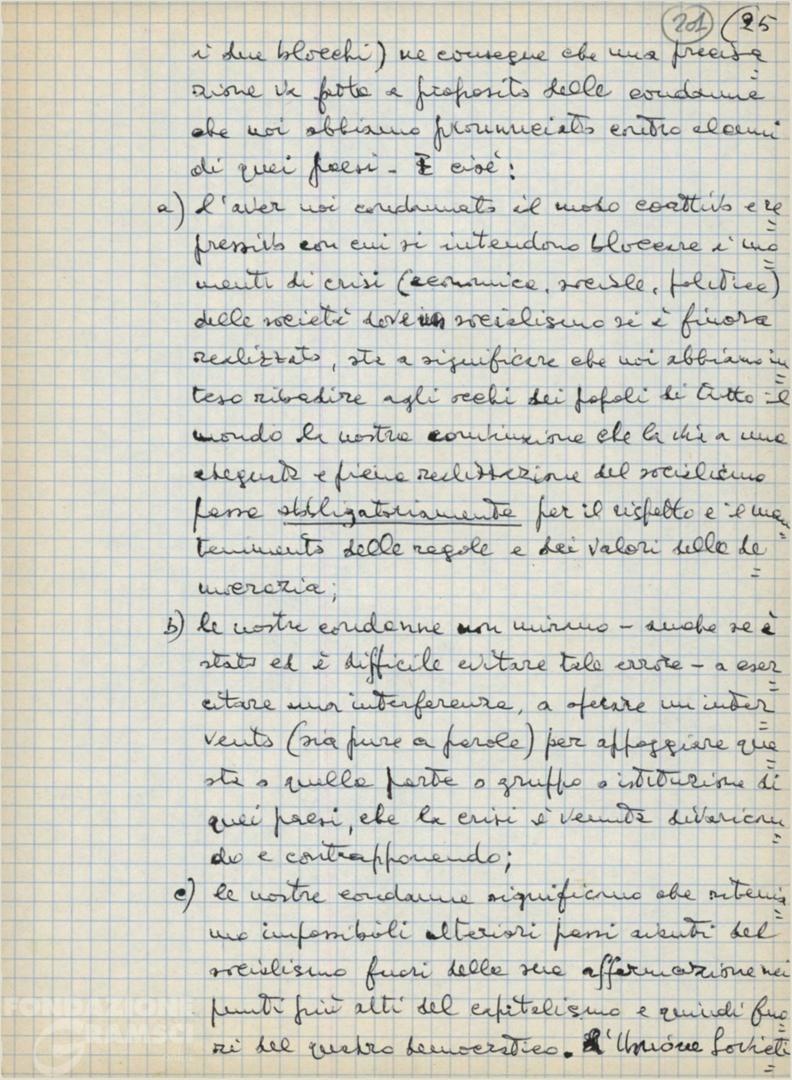 201 25
i due blocchi) ne consegue che una precisa=
zione va fatta a proposito delle condanne
che noi abbiamo pronunciato contro alcuni
di quei paesi - E cioè:
a) l'aver noi condannato il modo coattivo e re=
pressivo con cui si intendono bloccare i mo=
menti di crisi (economica, sociale, politica)
delle società dove un socialismo si è finora
realizzato, sta a significare che noi abbiamo in=
teso ribadire agli occhi dei popoli di tutto il
mondo la nostra convinzione che la via a una
adeguata e piena realizzazione del socialismo
passa obbligatoriamente per il rispetto e il man=
tenimento delle regole e dei valori della de=
mocrazia;
b) le nostre condanne non mirano - anche se è
stato ed è difficile evitare tale errore - a eser=
citare una interferenza, a operare un inter=
vento (sia pure a parole) per appoggiare que=
sta o quella parte o gruppo o istituzione di
quei paesi, che la crisi è venuta divarican=
do e contrapponendo;
c) le nostre condanne significano che ritenia=
mo impossibili ulteriori passi avanti del
socialismo fuori della sua affermazione nei
punti più alti del capitalismo e quindi fuo=
ri del quadro democratico. L'Unione Sovieti=
FONDAZIONE
GRAMSCI